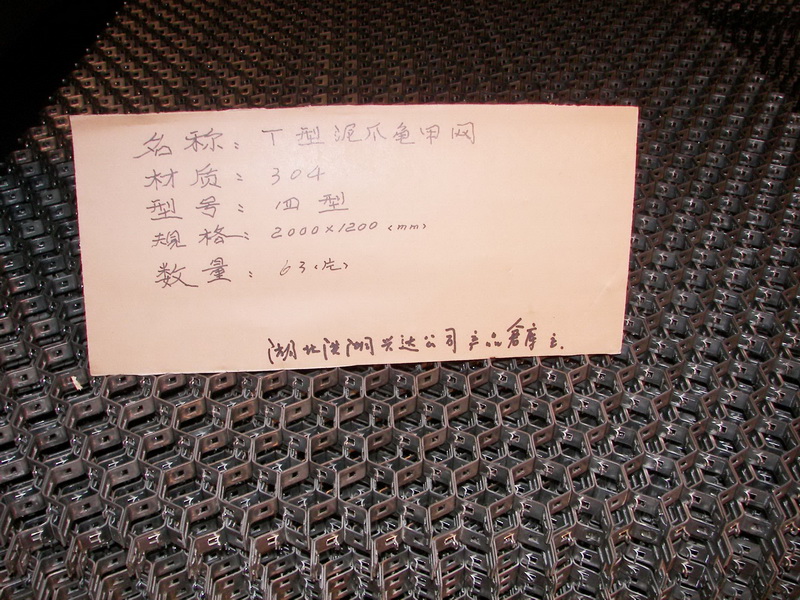 名称: T型泥爪龟甲网
材质: 304
型号: 四型
规格: 2000×1200(mm)
数量: 63(片)
湖北洪湖兴达公司产品仓库